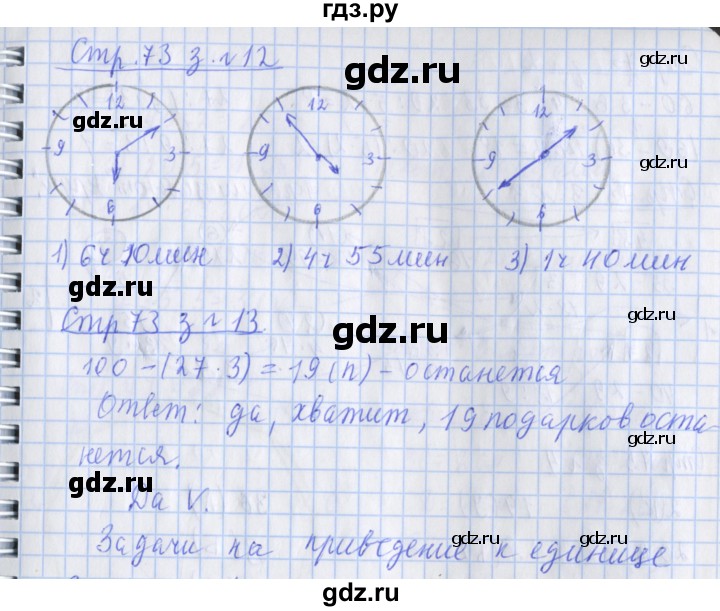 гдз.ру
Стр. 73 з. №12
gdz.ru
gdz.ru
gdz.ru
12
3
6
9
gdz.ru
12
3
6
9
12
3
6
9
gdz.ru
gdz.ru
1) 6ч 10мин 2) 4ч 55мин 3) 1ч 40мин
gdz.ru
Стр 73 з №13
gdz.ru
gdz.ru
100 - (27 · 3) = 19 (п) - останется
gdz.ru
Ответ: да, хватит, 19 подарков оста-
gdz.ru
нется.
gdz.ru
Да V.
gdz.ru
gdz.ru
Задачи на приведение к единице
gdz.ru